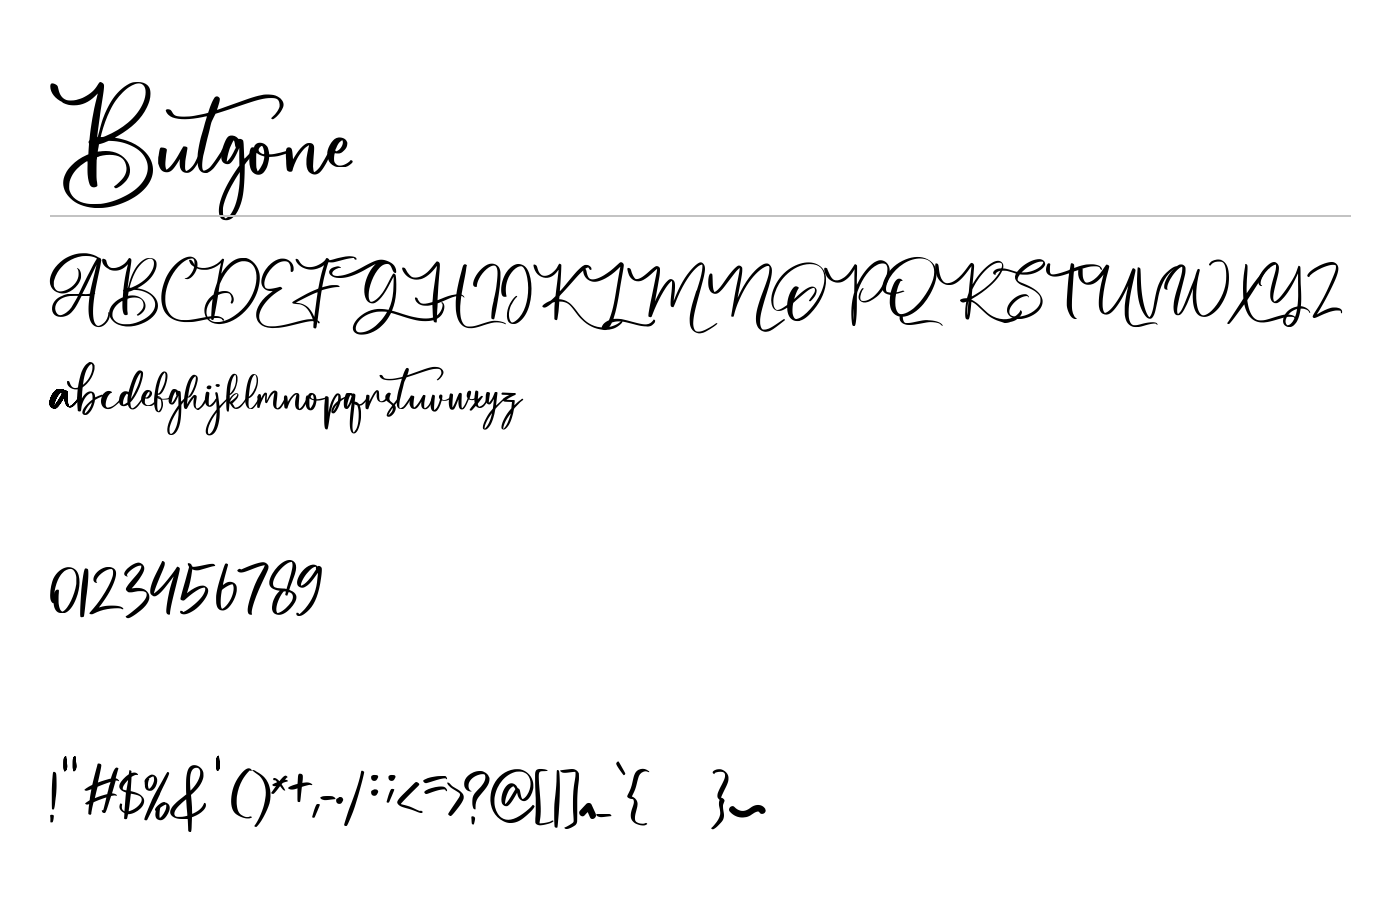 Butgone
ABCDEFGHIJKLMNOPQRSTUVWXYZ
abcdefghijklmnopqrstuvwxyz
0123456789
!"#$%&'()*+,-./:;<=>?@[|]^_`{ }~